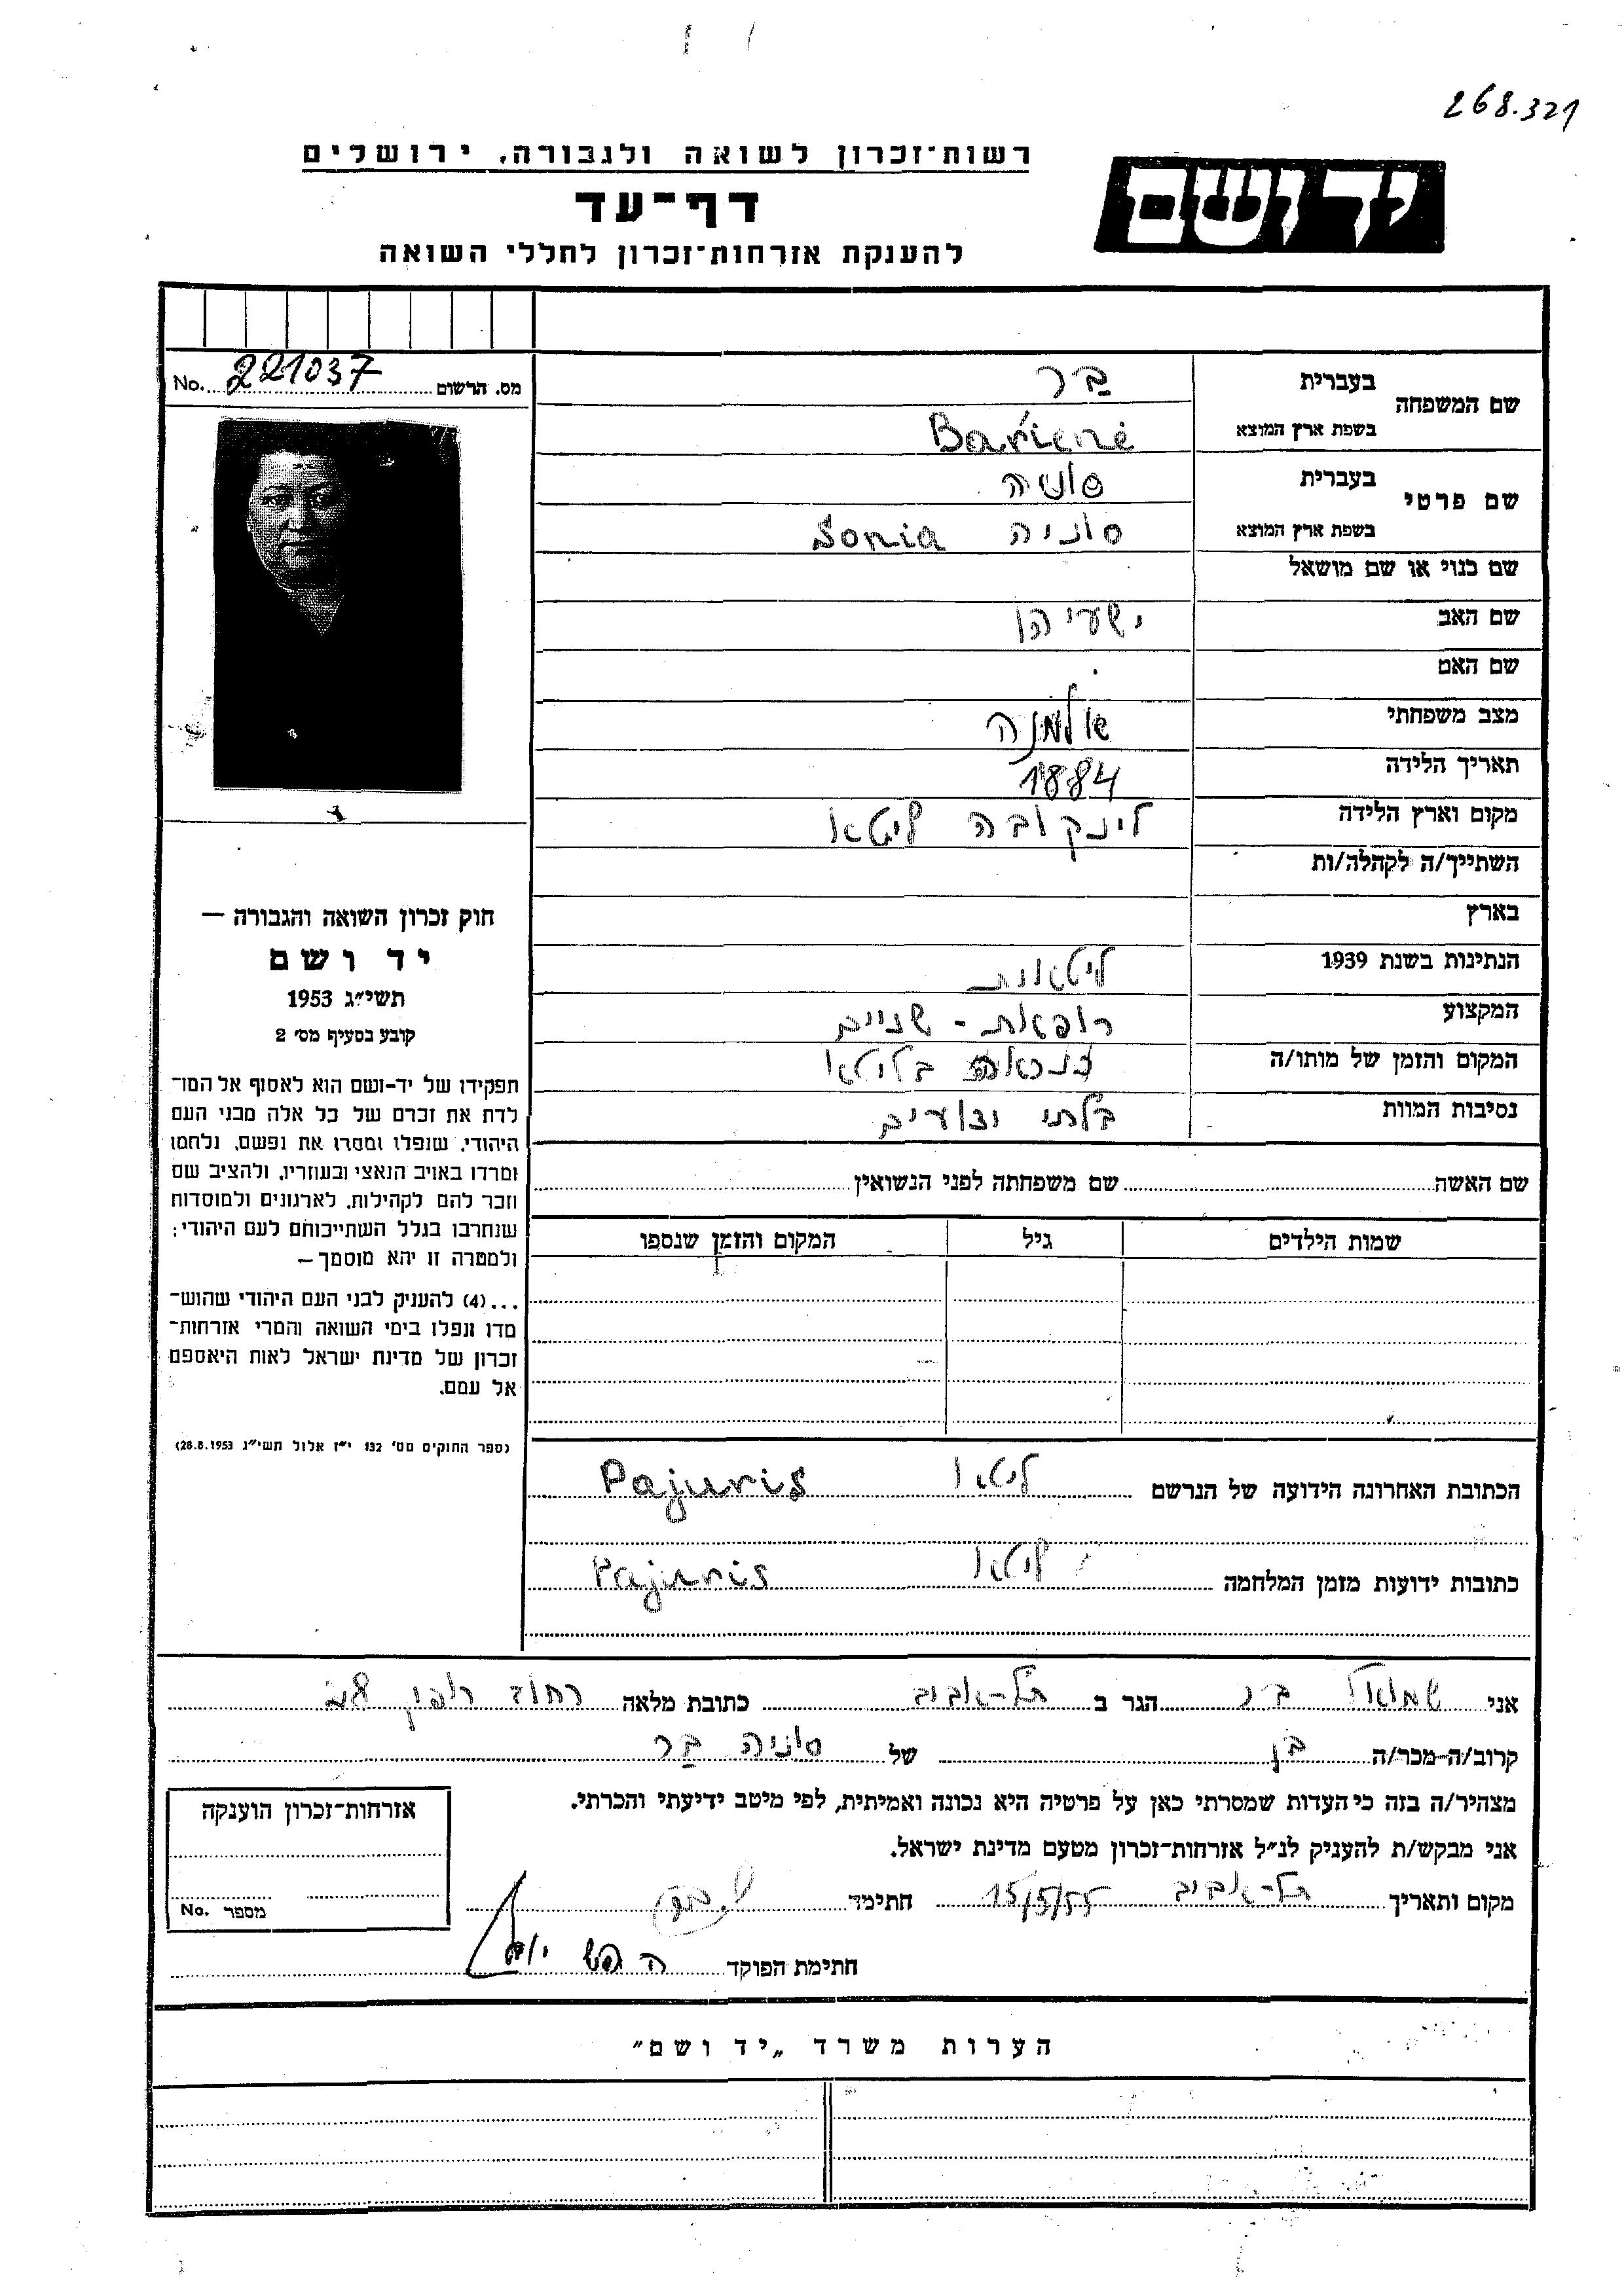 268.321
רשות־זכרון לשואה ולגבורה, ירושלים
יד ושם
דף־עד
להענקת אזרחות־זכרון לחללי השואה
מס. הרשום 221037 No.
שם המשפחה
בעברית בר
בשפת ארץ המוצא Barienė
שם פרטי
בעברית סוניה
בשפת ארץ המוצא סוניה Sonia
שם כנוי או שם מושאל
שם האב ישעיהו
שם האם
מצב משפחתי אלמנה
תאריך הלידה 1884
מקום וארץ הלידה לינקובה ליטא
השתייך/ה לקהלה/ות
בארץ
הנתינות בשנת 1939 ליטאית
המקצוע רופאת - שניים
המקום והזמן של מותו/ה בליטא
נסיבות המוות בלתי ידועים
חוק זכרון השואה והגבורה —
יד ושם
תשי״ג 1953
קובע בסעיף מס׳ 2
תפקידו של יד-ושם הוא לאסוף אל המו־
לדת את זכרם של כל אלה מבני העם
היהודי, שנפלו ומסרו את נפשם, נלחמו
ומרדו באויב הנאצי ובעוזריו, ולהציב שם
וזכר להם לקהילות, לארגונים ולמוסדות
שנחרבו בגלל השתייכותם לעם היהודי;
ולמטרה זו יהא מוסמך —
...(4) להעניק לבני העם היהודי שהוש־
מדו ונפלו בימי השואה והמרי אזרחות־
זכרון של מדינת ישראל לאות היאספם
אל עמם.
(ספר החוקים מס׳ 132 י״ז אלול תשי״ג 28.8.1953)
שם האשה שם משפחתה לפני הנשואין
שמות הילדים גיל המקום והזמן שנספו
הכתובת האחרונה הידועה של הנרשם ליטא Pajuris
כתובות ידועות מזמן המלחמה ליטא Pajuris
אני שמואל בר הגר ב תל-אביב כתובת מלאה רחוב
קרוב/ה-מכר/ה בן של סוניה בר
מצהיר/ה בזה כי העדות שמסרתי כאן על פרטיה היא נכונה ואמיתית, לפי מיטב ידיעתי והכרתי.
אני מבקש/ת להעניק לנ״ל אזרחות־זכרון מטעם מדינת ישראל.
מקום ותאריך תל-אביב 15/5/55 חתימה ש. בר
חתימת הפוקד
אזרחות־זכרון הוענקה
מספר No.
הערות משרד „יד ושם״